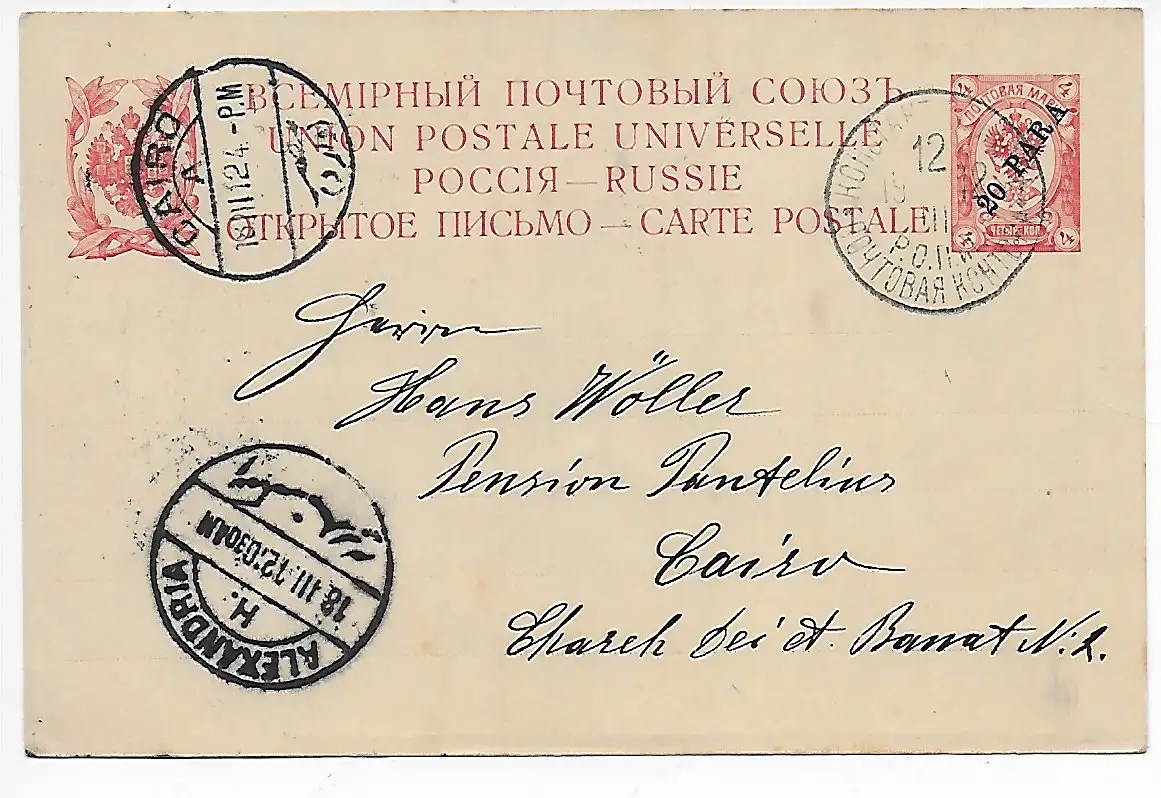 ВСЕМІРНЫЙ ПОЧТОВЫЙ СОЮЗЪ
UNION POSTALE UNIVERSELLE
РОССІЯ — RUSSIE
ОТКРЫТОЕ ПИСЬМО — CARTE POSTALE
ПОЧТОВАЯ МАРКА
4 4
20 PARA
4 ЧЕТЫР. КОП 4
CAIRO
A
12 4 - P.M
القاهرة
12
19
Р.О.П.
ПОЧТОВАЯ КОНТ
Herrn
Hans Wöller
Pension Pantelius
Cairo
Chareh bei el Banat N: 2.
ALEXANDRIA
H.
18. III. 12. 0300AM